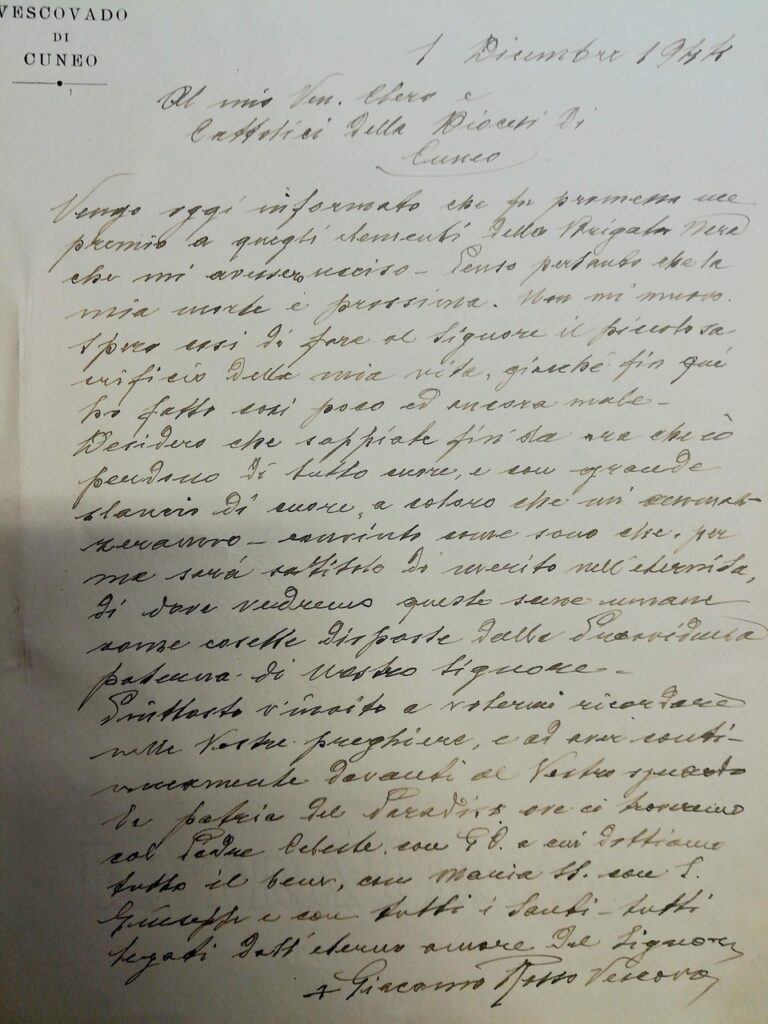 VESCOVADO
DI
CUNEO
1 Dicembre 1944
Al mio Ven. Clero e
Cattolici della Diocesi di
Cuneo
Vengo oggi informato che fu promesso un
premio a quegli elementi della Brigata Nera
che mi avessero ucciso - Penso pertanto che la
mia morte è prossima. Non mi muovo.
Spero così di fare al Signore il piccolo sa
crificio della mia vita, giacché fin quì
ho fatto così poco ed ancora male -
Desidero che sappiate fin da ora che io
perdono di tutto cuore, e con grande
slancio di cuore, a coloro che mi ammaz-
zeranno - convinto come sono che, per
me sarà titolo di merito nell'eternità,
di dove vedremo queste scene umane
come cosette disposte dalla Provvidenza
paterna di Nostro Signore -
Piuttosto v'invito a volermi ricordare
nelle Vostre preghiere, e ad aver conti-
nuamente davanti al Vostro sguardo
la patria del Paradiso ove ci troveremo
col Padre Celeste, con G.C. a cui dobbiamo
tutto il bene, con Maria SS. con S.
Giuseppe e con tutti i Santi - tutti
legati dall'eterno amore del Signore
+ Giacomo Rosso Vescovo